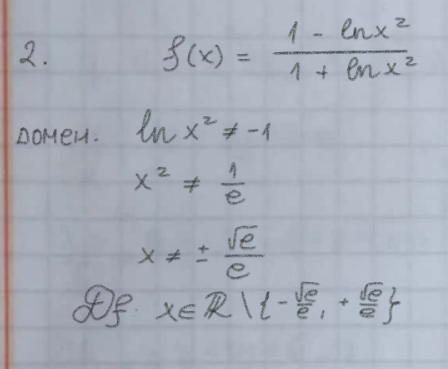 2. f(x) = (1 - ln x²) / (1 + ln x²)
домен. ln x² ≠ -1
x² ≠ 1/e
x ≠ ± √e/e
Df. x ∈ ℝ \ {-√e/e, +√e/e}